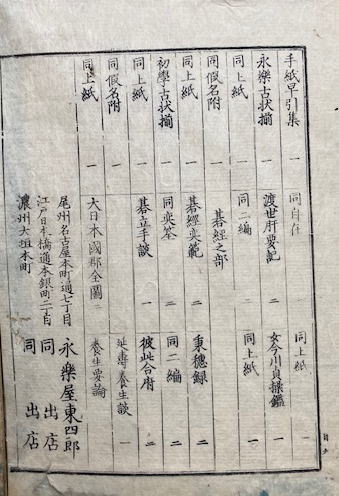 手紙早引集 一
永樂古状揃 一
同上紙 一
同假名附 一
同上紙 一
初學古状揃 一
同上紙 一
同假名附 一
同上紙 一
同自在 一
渡世肝要記 二
同二編 二
碁經之部
碁經奕範 二
同奕筌 二
碁立手談 一
大日本國郡全圖 二
同上紙 一
女今川貞操鑑 一
同上紙 一
秉穗録 二
同二編 二
彼此合府 二
延壽養生談 一
養生要論 一
尾州名古屋本町通七丁目 永樂屋東四郎
江戸日本橋通本銀町二丁目 同出店
濃州大垣本町 同出店